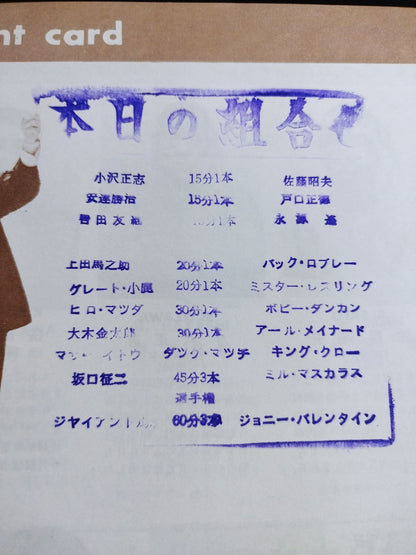 nt card
本日の組合せ
小沢正志 15分1本 佐藤昭夫
安達勝治 15分1本 戸口正徳
永源遙
上田馬之助 20分1本 バック・ロブレー
グレート・小鹿 20分1本 ミスター・レスリング
ヒロ・マツダ 30分1本 ボビー・ダンカン
大木金太郎 30分1本 アール・メイナード
タッグ・マッチ キング・クロー
坂口征二 45分3本 ミル・マスカラス
選手権
ジャイアント 60分3本 ジョニー・バレンタイン